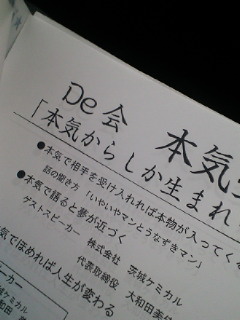 De会 本気
「本気からしか生まれ
●本気で相手を受け入れれば本物が入ってくる
話の聞き方「いやいやマンとうなずきマン」
●本気で語ると夢が近づく
ゲストスピーカー 株式会社 茨城ケミカル
代表取締役 大和田
気でほめれば人生が変わる
ーカー
ケミカル